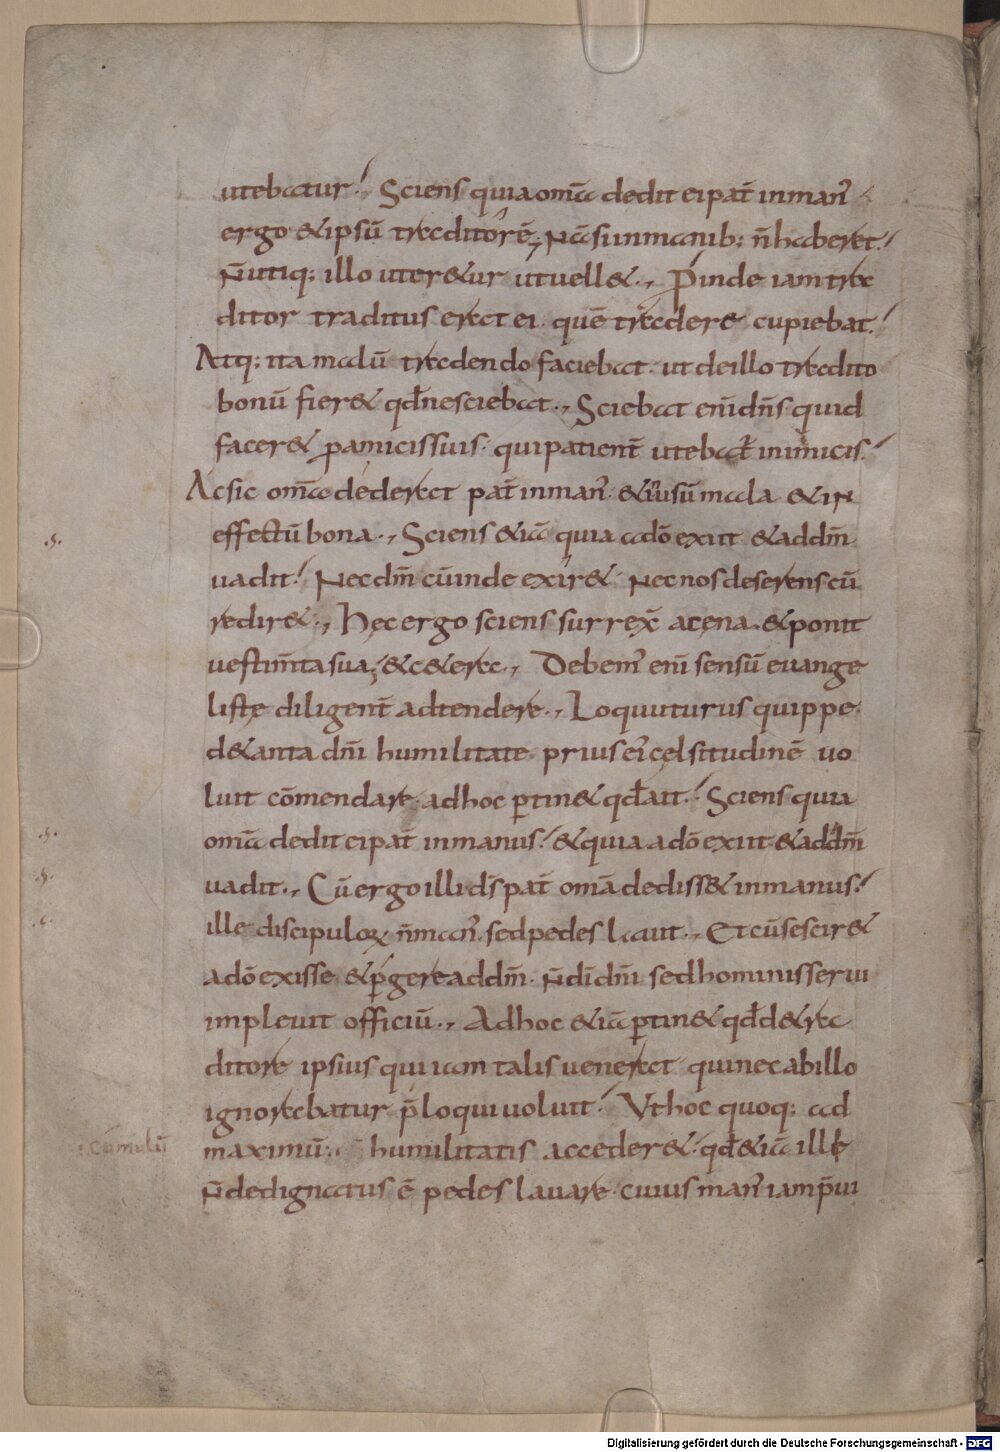 utebatur! Sciens quia om̄a dedit ei pat̄ in man᾽
ergo & ipsū traditorē; Nā si in manib; n̄ haberet!
N̄ utiq; illo uter&ur ut uell&., P̄inde iam tra
ditor traditus erat ei. quē tradere cupiebat!
Atq; ita malū tradendo faciebat. ut de illo tradito
bonū fier& qd̄ nesciebat., Sciebat eni dn̄s quid
facer& p̄ amicis suis. qui patient̄ utebat̄ inimicis!
Ac sic om̄a dederat pat̄ in man᾽. & in usū mala & in
effectū bona., Sciens &iā quia a dō exiit & ad dm̄
uadit! Nec dm̄ cū inde exir& Nec nos deserens cū
redir&., Hęc ergo sciens surrex̄ a cęna. & ponit
uestim̄ta sua; & c&era., Debem᾽ eni sensū euange
listę diligent̄ adtendere., Loquuturus quippe
de tanta dn̄i humilitate prius ei᾽ celsitudinē uo
luit cōmendare. ad hoc ptin& qd̄ ait! Sciens quia
om̄a dedit ei pat̄ in manus! & quia a dō exiit & ad dm̄
uadit., Cū ergo illi ds̄ pat̄ om̄a dediss& in manus!
ille discipuloꝝ n̄ man᾽. sed pedes lauit., Et cū se scir&
a dō exisse. & pgere ad dm̄. N̄ di dn̄i sed hominis serui
impleuit officiū., Ad hoc &iā ptin& qd̄ de tra
ditore ipsius qui iam talis uenerat qui nec ab illo
ignorabatur p̄loqui uoluit! Vt hoc quoq; ad
cumulū
maximū., humilitatis acceder&. qd̄ &iā ille
N̄ dedignatus ē pedes lauare. cuius man᾽ iam p̄ui
Digitalisierung gefördert durch die Deutsche Forschungsgemeinschaft - DFG